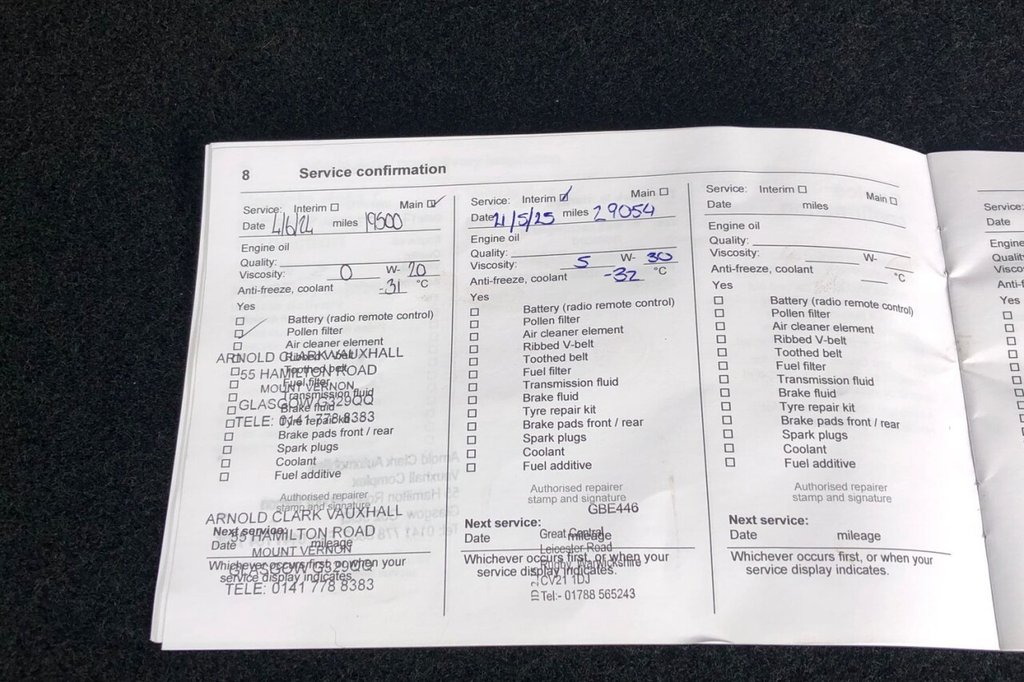 8 Service confirmation
Service: Interim Main
Date 4/6/24 miles 19500
Engine oil
Quality:
Viscosity: 0 W- 20
Anti-freeze, coolant -31 °C
Yes
Battery (radio remote control)
Pollen filter
Air cleaner element
Ribbed V-belt
Toothed belt
Fuel filter
Transmission fluid
Brake fluid
Tyre repair kit
Brake pads front / rear
Spark plugs
Coolant
Fuel additive
ARNOLD CLARK VAUXHALL
55 HAMILTON ROAD
MOUNT VERNON
GLASGOW G329QQ
TELE: 0141 778 8383
Authorised repairer
stamp and signature
ARNOLD CLARK VAUXHALL
55 HAMILTON ROAD
MOUNT VERNON
GLASGOW G329QQ
TELE: 0141 778 8383
Next service:
Date mileage
Whichever occurs first, or when your
service display indicates.
Service: Interim Main
Date 21/5/25 miles 29054
Engine oil
Quality:
Viscosity: 5 W- 30
Anti-freeze, coolant -32 °C
Yes
Battery (radio remote control)
Pollen filter
Air cleaner element
Ribbed V-belt
Toothed belt
Fuel filter
Transmission fluid
Brake fluid
Tyre repair kit
Brake pads front / rear
Spark plugs
Coolant
Fuel additive
Authorised repairer
stamp and signature
GBE446
Next service:
Date mileage
Great Central
Leicester Road
Rugby, Warwickshire
CV21 1DJ
Tel:- 01788 565243
Whichever occurs first, or when your
service display indicates.
Service: Interim Main
Date miles
Engine oil
Quality:
Viscosity: W-
Anti-freeze, coolant °C
Yes
Battery (radio remote control)
Pollen filter
Air cleaner element
Ribbed V-belt
Toothed belt
Fuel filter
Transmission fluid
Brake fluid
Tyre repair kit
Brake pads front / rear
Spark plugs
Coolant
Fuel additive
Authorised repairer
stamp and signature
Next service:
Date mileage
Whichever occurs first, or when your
service display indicates.
Service:
Date
Engine
Yes